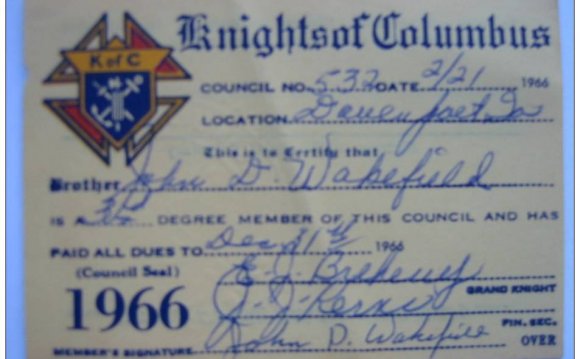 K of C
Knights of Columbus
COUNCIL NO. 532 DATE 2/21 1966
LOCATION Davenport Ia
This is to Certify that
Brother John D. Wakefield
IS A 3rd DEGREE MEMBER OF THIS COUNCIL AND HAS
PAID ALL DUES TO Dec 31st 1966
(Council Seal)
E. J.
GRAND KNIGHT
1966
J. J. Kerns
FIN. SEC.
MEMBER'S SIGNATURE John D. Wakefield
OVER